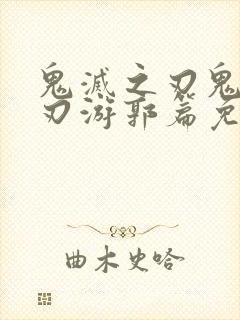 鬼滅之刃鬼
刃游郭篇免
曲木史哈